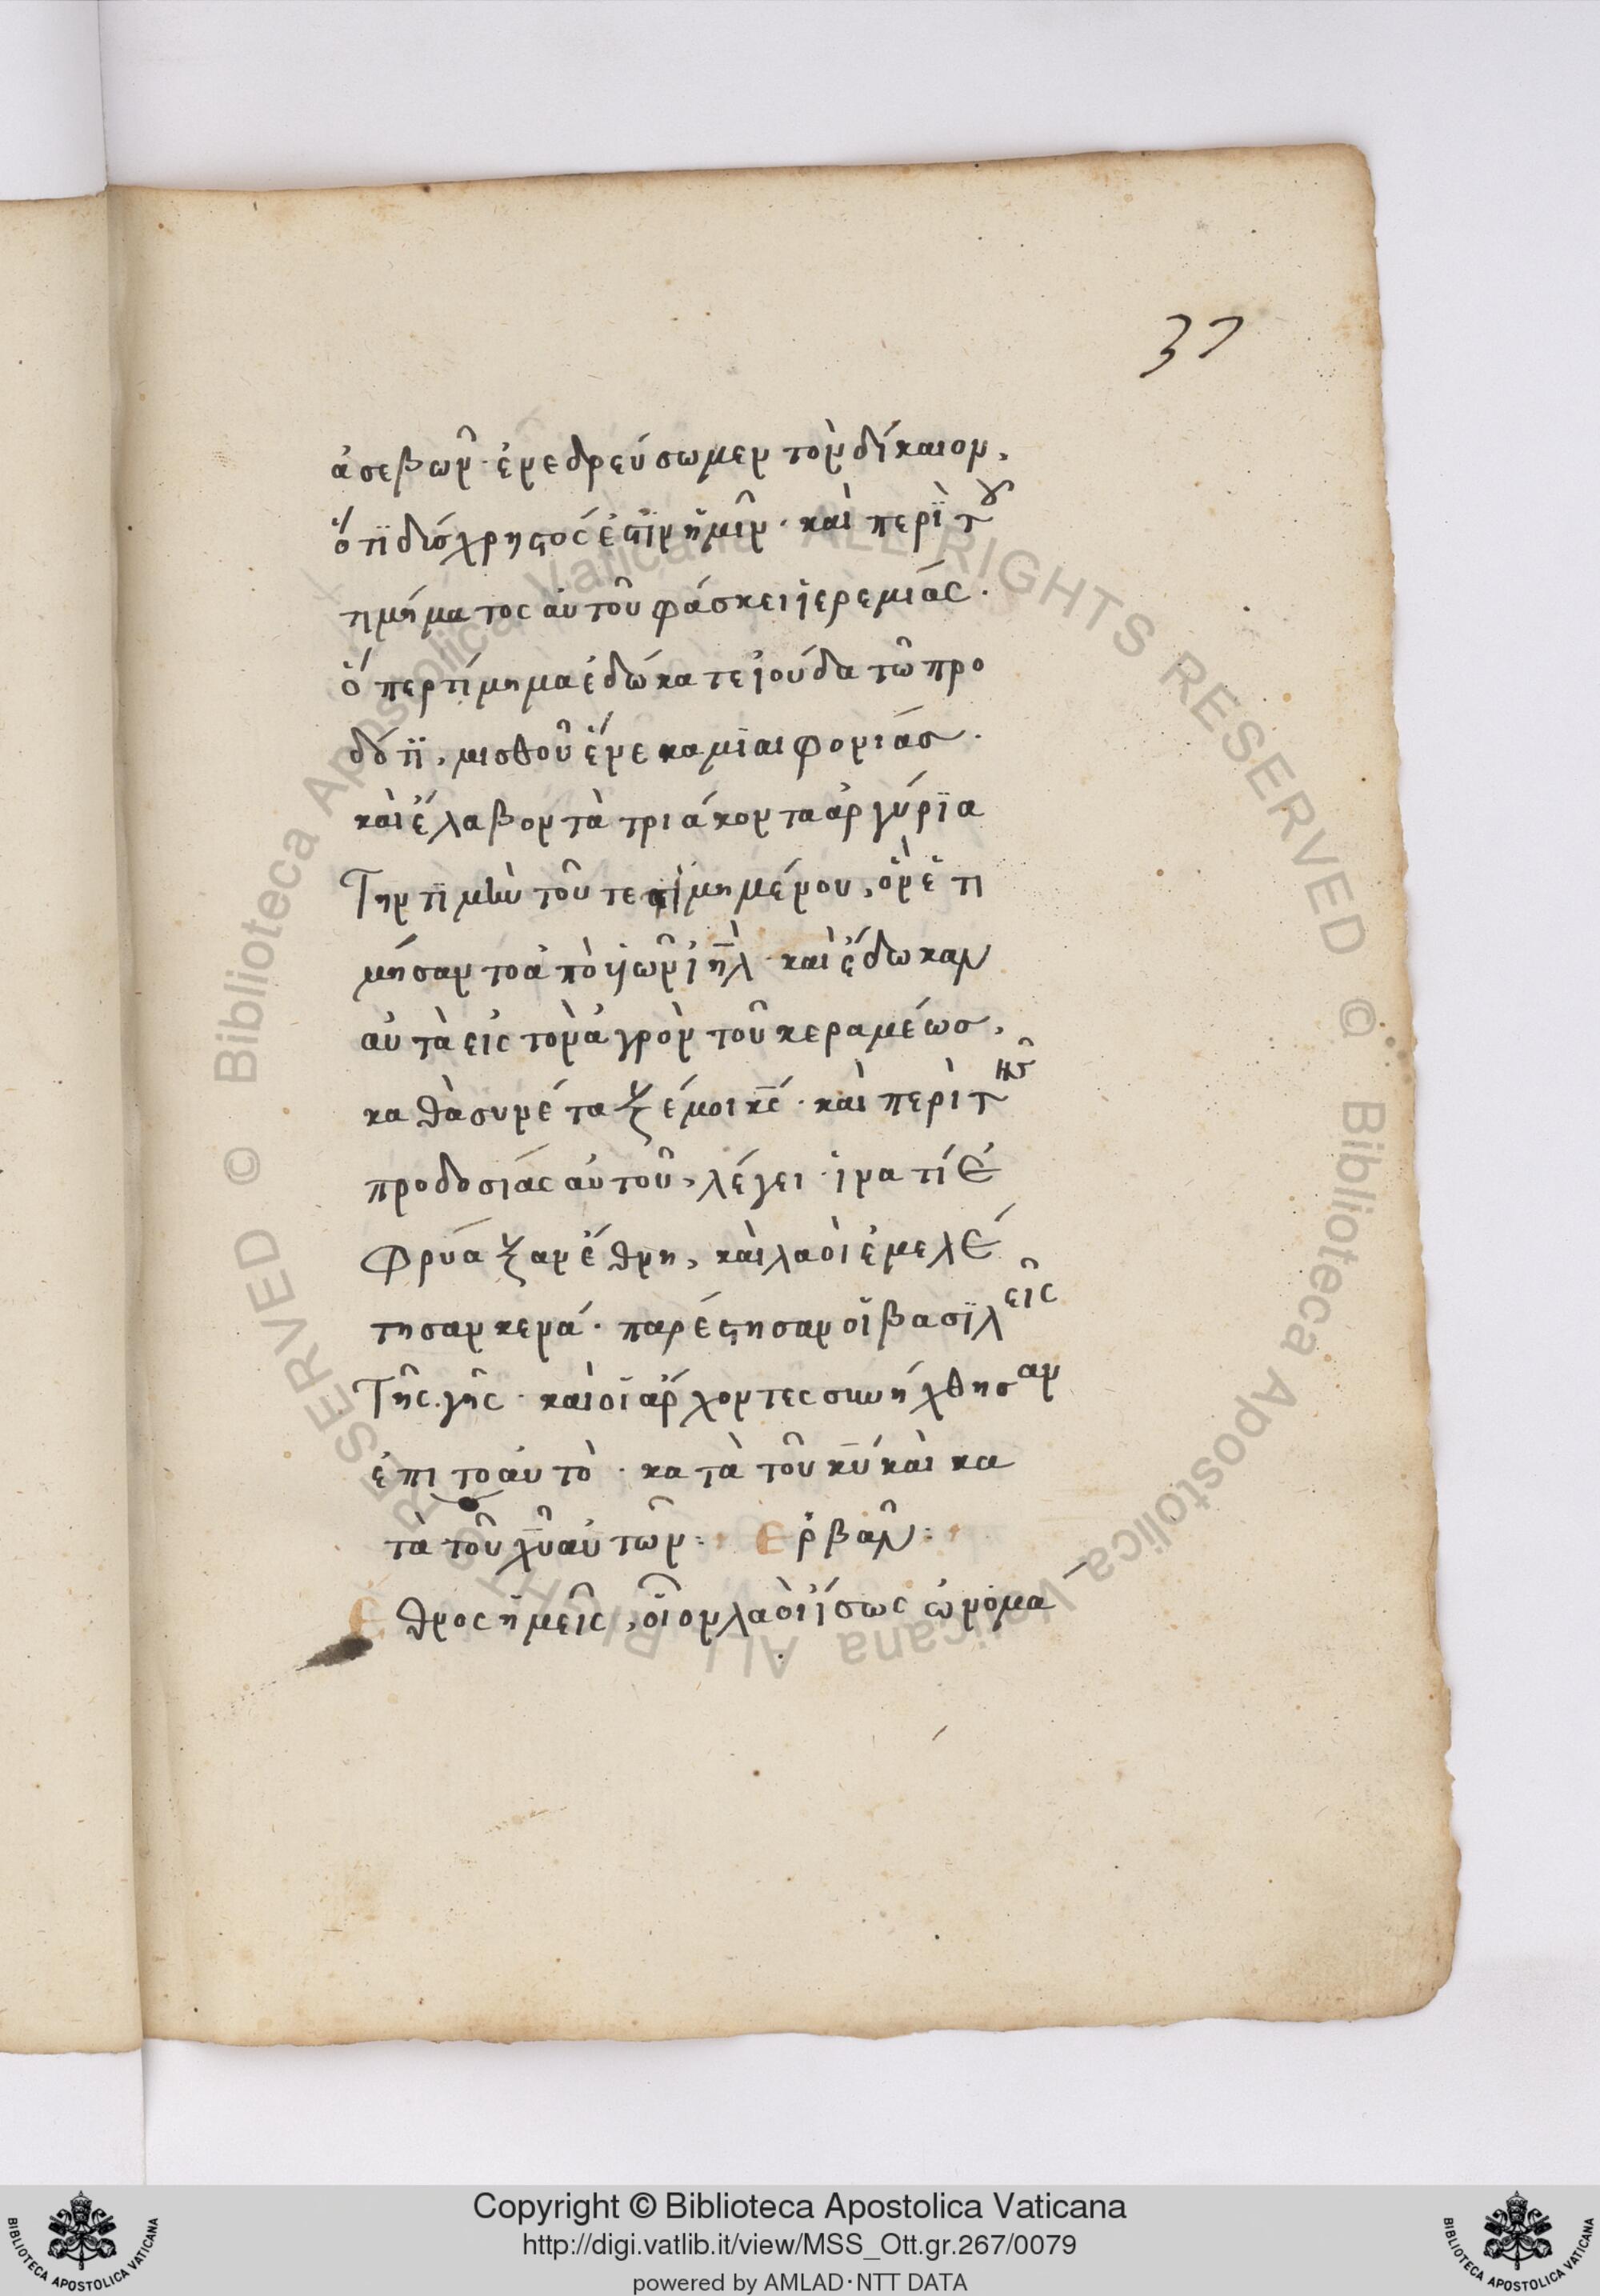 37
ἀσεβῶν· ἐνεδρεύσωμεν τὸν δίκαιον,
ὅτϊ δύσχρηστος ἐστϊν ἡμῖν· καὶ περῒ τοῦ
τιμήματος αὐτοῦ φάσκει ἱερεμίας.
ὅπερ τίμημα ἐδώκατε ἰούδα τῶ προ
δότϊ, μισθοῦ ἕνεκα μιαιφονίας.
καὶ ἔλαβον τὰ τριάκοντα ἀργύρϊα
Την τϊμὴν τοῦ τετϊμημένου, ὃν ἐτι
μήσαντο ἀπὸ ὑιῶν ιηλ· καὶ ἔδωκαν
αὐτὰ εἰς τὸν ἀγρὸν τοῦ κεραμέως,
καθὰ συνέταξέ μοι κς· καὶ περὶ τῆς
προδοσίας αὐτοῦ, λέγει· ἱνατί ἐ
φρύαξαν ἔθνη, καὶ λαοὶ ἐμελέ
τησαν κενά· παρέστησαν οἱ βασϊλεῖς
Τῆς γῆς· καὶ οἱ ἄρχοντες συνήχθησαν
ἐπιτοαυτὸ· κατὰ τοῦ κύ καὶ κα
τὰ τοῦ χῦ αὐτῶν: Ερβᾶν:
Εθνος ἡμεῖς, οἷον λαὸι ἴσως ὠνόμα
Copyright © Biblioteca Apostolica Vaticana
http://digi.vatlib.it/view/MSS_Ott.gr.267/0079
powered by AMLAD·NTT DATA
BIBLIOTECA APOSTOLICA VATICANA
BIBLIOTECA APOSTOLICA VATICANA